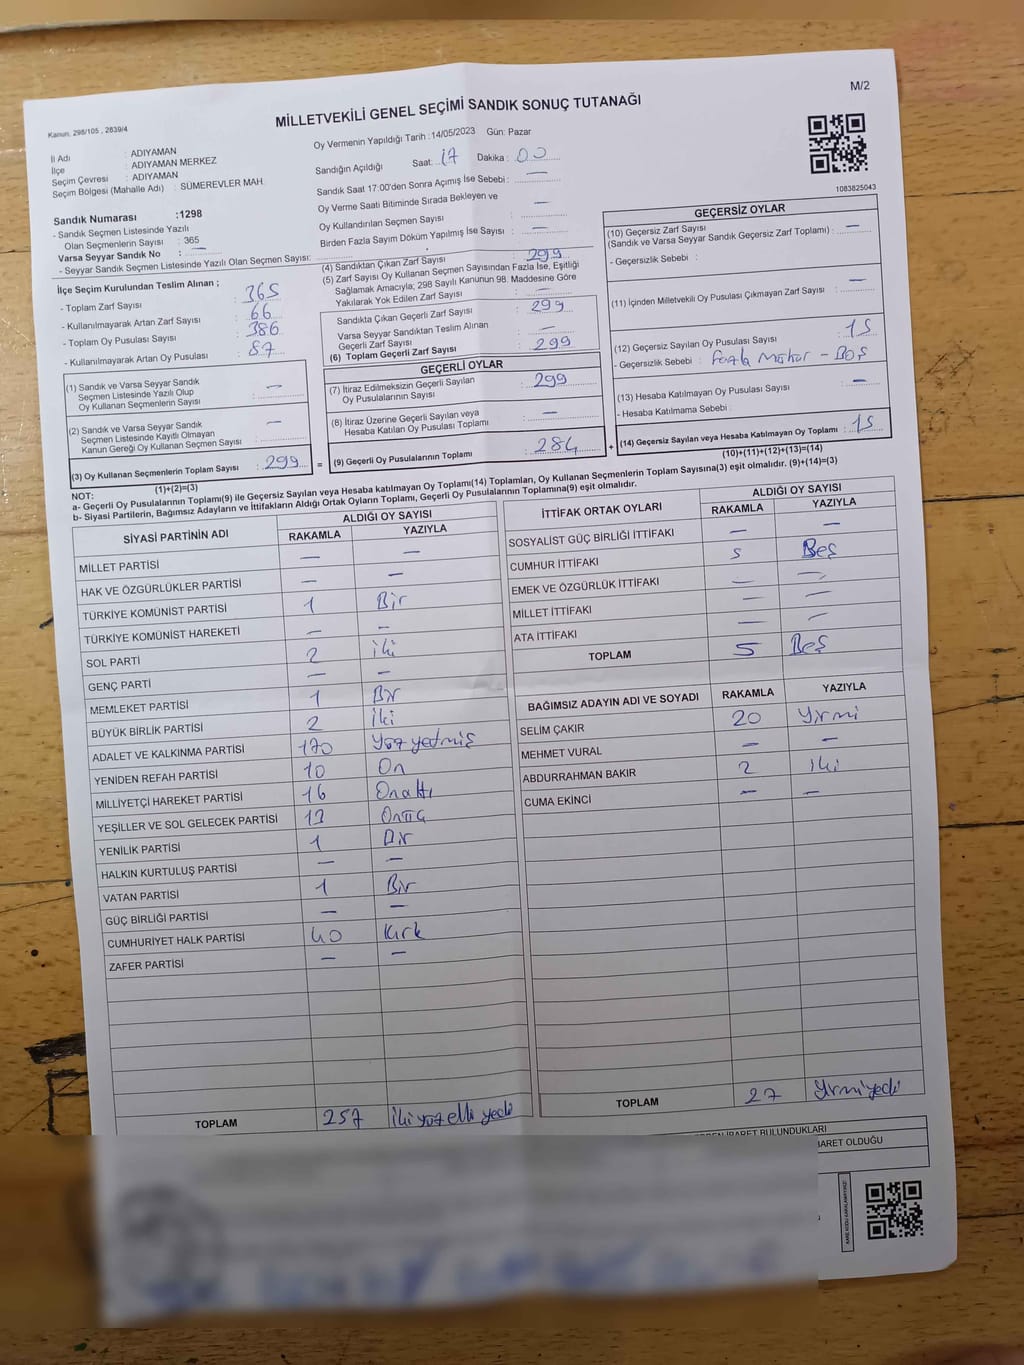 M/2
Kanun: 298/105 , 2839/4
MİLLETVEKİLİ GENEL SEÇİMİ SANDIK SONUÇ TUTANAĞI
İl Adı : ADIYAMAN
İlçe : ADIYAMAN MERKEZ
Seçim Çevresi : ADIYAMAN
Seçim Bölgesi (Mahalle Adı) : SÜMEREVLER MAH.
Sandık Numarası :1298
- Sandık Seçmen Listesinde Yazılı
Olan Seçmenlerin Sayısı : 365
Varsa Seyyar Sandık No : —
- Seyyar Sandık Seçmen Listesinde Yazılı Olan Seçmen Sayısı:
Oy Vermenin Yapıldığı Tarih :14/05/2023 Gün: Pazar
Sandığın Açıldığı Saat: 17 Dakika : 00
Sandık Saat 17:00'den Sonra Açımış İse Sebebi : —
Oy Verme Saati Bitiminde Sırada Bekleyen ve
Oy Kullandırılan Seçmen Sayısı : —
Birden Fazla Sayım Döküm Yapılmış İse Sayısı : —
1083825043
İlçe Seçim Kurulundan Teslim Alınan ;
- Toplam Zarf Sayısı : 365
- Kullanılmayarak Artan Zarf Sayısı : 66
- Toplam Oy Pusulası Sayısı : 386
- Kullanılmayarak Artan Oy Pusulası : 87
(1) Sandık ve Varsa Seyyar Sandık
Seçmen Listesinde Yazılı Olup
Oy Kullanan Seçmenlerin Sayısı : —
(2) Sandık ve Varsa Seyyar Sandık
Seçmen Listesinde Kayıtlı Olmayan
Kanun Gereği Oy Kullanan Seçmen Sayısı : —
(3) Oy Kullanan Seçmenlerin Toplam Sayısı : 299 =
(1)+(2)=(3)
(4) Sandıktan Çıkan Zarf Sayısı : 299
(5) Zarf Sayısı Oy Kullanan Seçmen Sayısından Fazla İse, Eşitliği
Sağlamak Amacıyla; 298 Sayılı Kanunun 98. Maddesine Göre
Yakılarak Yok Edilen Zarf Sayısı : —
Sandıkta Çıkan Geçerli Zarf Sayısı : 299
Varsa Seyyar Sandıktan Teslim Alınan
Geçerli Zarf Sayısı : —
(6) Toplam Geçerli Zarf Sayısı : 299
GEÇERLİ OYLAR
(7) İtiraz Edilmeksizin Geçerli Sayılan
Oy Pusulalarının Sayısı : 299
(8) İtiraz Üzerine Geçerli Sayılan veya
Hesaba Katılan Oy Pusulası Toplamı : —
(9) Geçerli Oy Pusulalarının Toplamı : 284 +
GEÇERSİZ OYLAR
(10) Geçersiz Zarf Sayısı
(Sandık ve Varsa Seyyar Sandık Geçersiz Zarf Toplamı) : —
- Geçersizlik Sebebi :
(11) İçinden Milletvekili Oy Pusulası Çıkmayan Zarf Sayısı : —
(12) Geçersiz Sayılan Oy Pusulası Sayısı : 15
- Geçersizlik Sebebi : Fazla Mühür - BOŞ
(13) Hesaba Katılmayan Oy Pusulası Sayısı : —
- Hesaba Katılmama Sebebi :
(14) Geçersiz Sayılan veya Hesaba Katılmayan Oy Toplamı : 15
(10)+(11)+(12)+(13)=(14)
NOT:
a- Geçerli Oy Pusulalarının Toplamı(9) ile Geçersiz Sayılan veya Hesaba katılmayan Oy Toplamı(14) Toplamları, Oy Kullanan Seçmenlerin Toplam Sayısına(3) eşit olmalıdır. (9)+(14)=(3)
b- Siyasi Partilerin, Bağımsız Adayların ve İttifakların Aldığı Ortak Oyların Toplamı, Geçerli Oy Pusulalarının Toplamına(9) eşit olmalıdır.
SİYASİ PARTİNİN ADI ALDIĞI OY SAYISI
RAKAMLA YAZIYLA
MİLLET PARTİSİ — —
HAK VE ÖZGÜRLÜKLER PARTİSİ — —
TÜRKİYE KOMÜNİST PARTİSİ 1 Bir
TÜRKİYE KOMÜNİST HAREKETİ — —
SOL PARTİ 2 iki
GENÇ PARTİ — —
MEMLEKET PARTİSİ 1 Bir
BÜYÜK BİRLİK PARTİSİ 2 iki
ADALET VE KALKINMA PARTİSİ 170 Yüz yetmiş
YENİDEN REFAH PARTİSİ 10 On
MİLLİYETÇİ HAREKET PARTİSİ 16 Onaltı
YEŞİLLER VE SOL GELECEK PARTİSİ
YENİLİK PARTİSİ 1 Bir
HALKIN KURTULUŞ PARTİSİ — —
VATAN PARTİSİ 1 Bir
GÜÇ BİRLİĞİ PARTİSİ — —
CUMHURİYET HALK PARTİSİ 40 Kırk
ZAFER PARTİSİ — —
TOPLAM 257 İki yüz elli yedi
İTTİFAK ORTAK OYLARI ALDIĞI OY SAYISI
RAKAMLA YAZIYLA
SOSYALİST GÜÇ BİRLİĞİ İTTİFAKI — —
CUMHUR İTTİFAKI 5 Beş
EMEK VE ÖZGÜRLÜK İTTİFAKI — —
MİLLET İTTİFAKI — —
ATA İTTİFAKI — —
TOPLAM 5 Beş
BAĞIMSIZ ADAYIN ADI VE SOYADI RAKAMLA YAZIYLA
SELİM ÇAKIR 20 Yirmi
MEHMET VURAL — —
ABDURRAHMAN BAKIR 2 iki
CUMA EKİNCİ — —
TOPLAM 27 Yirmiyedi
İBARET BULUNDUKLARI
BARET OLDUĞU